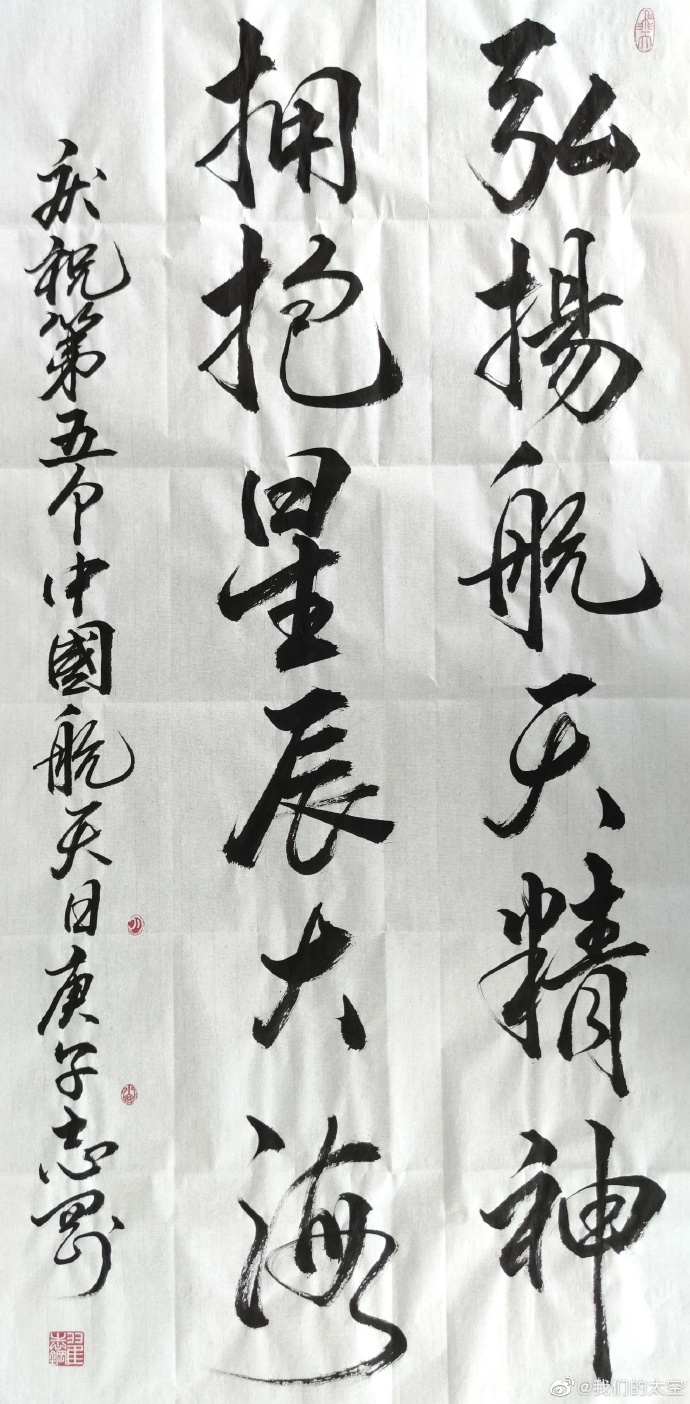 弘揚航天精神
拥抱星辰大海
庆祝第五个中國航天日庚子志罡
@我们的太空